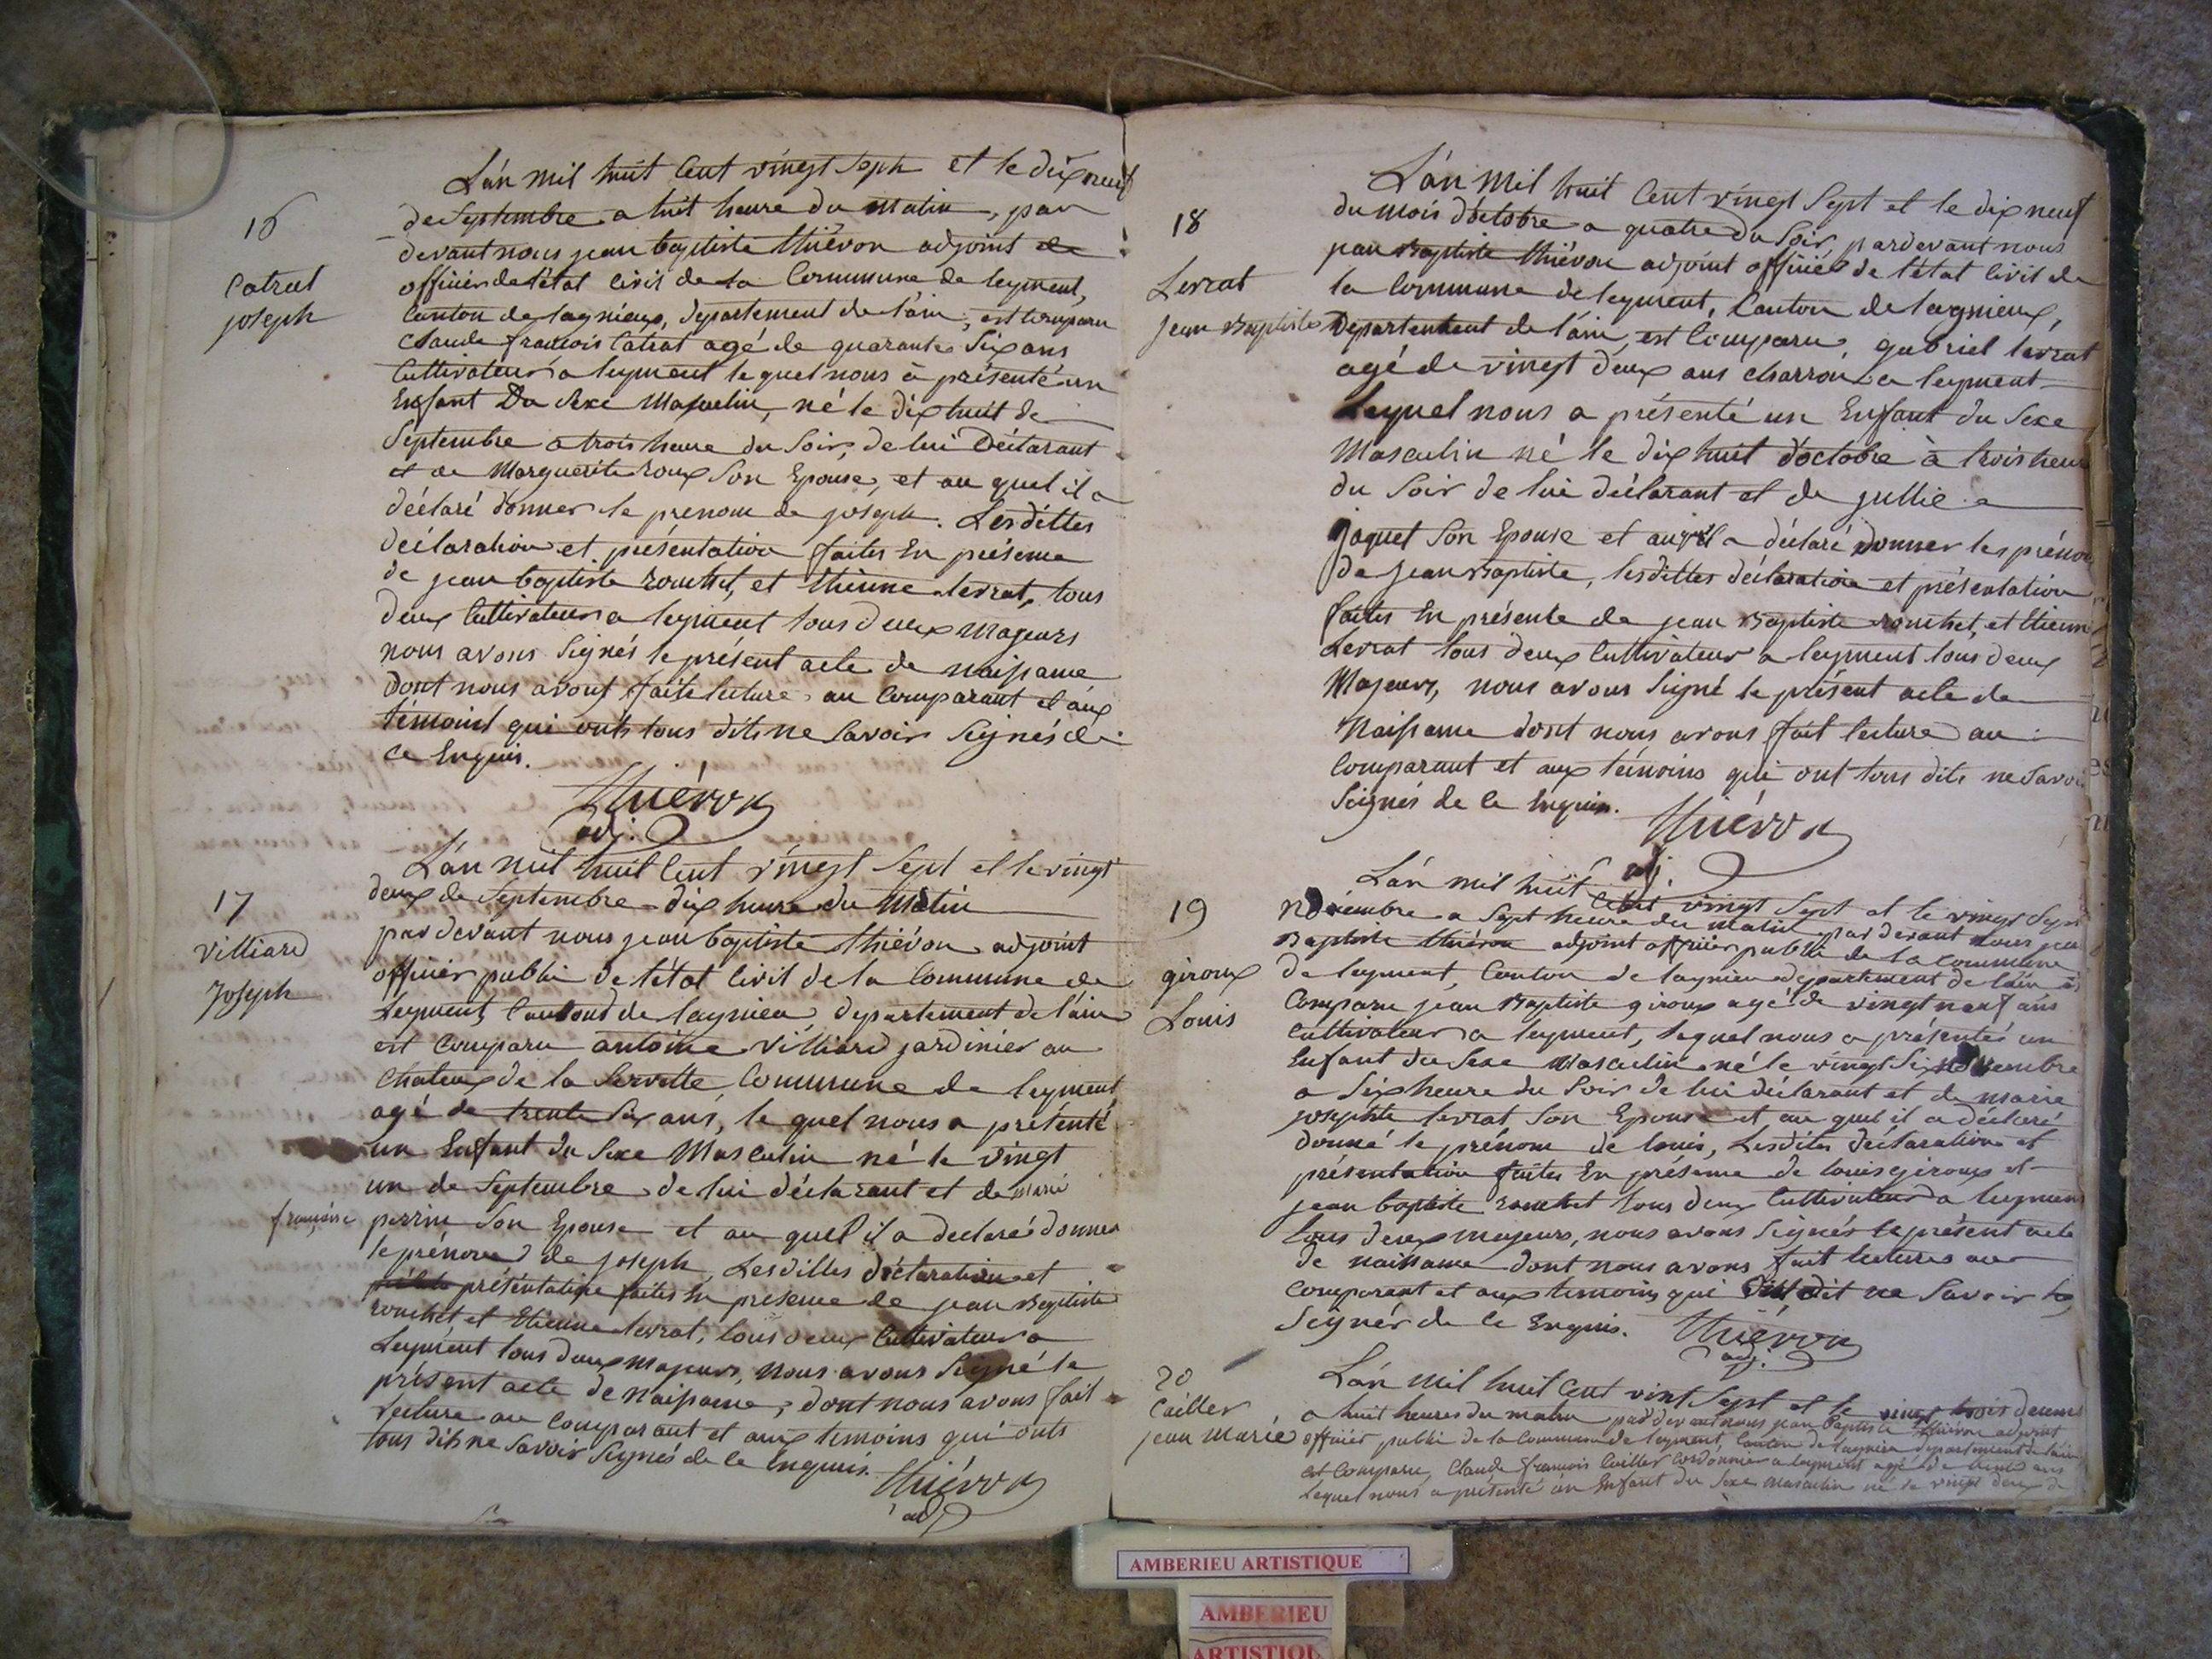 16
Catrat
joseph
L'an mil huit Cent vingt Sept et le dix neuf
de Septembre a huit heure du matin, par
devant nous jean baptiste thiévon adjoint de
officier de l'état Civil de la Commune de leyment,
Canton de lagnieux, département de l'ain, est Comparu
Claude françois Catrat agé de quarante Six ans
Cultivateur a leyment lequel nous à présenté un
Enfant Du Sexe Masculin, né le dix huit de
Septembre a trois heure du Soir, de lui Déclarant
et de Marguerite roux Son Epouse, et au quel il a
déclaré donner le prenom de joseph. Lesdittes
déclaration et présentation faites En présence
de jean baptiste rouchet, et Etienne levrat, tous
deux Cultivateur a leyment tous deux majeurs
nous avons Signés le présent acte de naissance
dont nous avont faite lecture au Comparant et aux
témoint qui onts tous dits ne Savoir Seignés de
Ce Enquis.
Thiévon
adj.
17
Villiard
Joseph
L'an mil huit Cent vingt Sept et le vingt
deux de Septembre dix heure du Matin
par devant nous jean baptiste thiévon adjoint
officier public de l'état Civil de la Commune de
Leyment, Canton de lagnieu département de l'ain
est Comparu antoine Villiard jardinier au
Chateux de la Servette Commune de leyment,
agé de trente Six ans, le quel nous a présenté
un Enfant du Sexe Masculin né le vingt
un de Septembre de lui déclarant et de marie
françoise perrin Son Epouse et au quel il a declaré donner
le prénom de joseph, Lesdittes déclaration et
présentation faites En présence de jean Baptiste
rouchet et Etienne levrat, tous deux Cultivateur a
Leyment tous deux majeurs, nous avons Signé le
présent acte de Naissance, dont nous avons fait
lecture au Comparant et aux temoins qui onts
tous dits ne Savoir Seignés de Ce Enquis.
Thiévon
adj
18
Levrat
Jean Baptiste
L'an Mil huit Cent vingt Sept et le dix neuf
du mois d'octobre a quatre du Soir, pardevant nous
jean Baptiste thiévon adjoint officier de l'état Civil de
la Commune de leyment, Canton de lagnieux,
Département de l'ain, est Comparu, gabriel levrat
agé de vingt deux ans charron a leyment
Lequel nous a présenté un Enfant du Sexe
Masculin né le dix huit d'octobre à trois heure
du Soir de lui déclarant et de jullie
jaquet Son Epouse et auquel a déclaré donner les préno
de Jean Baptiste, lesdittes déclaration et présentation
faites En présente de jean Baptiste rouchet, et Etienne
Levrat tous deux Cultivateur a leyment tous deux
Majeurs, nous avons Signé le présent acte de
Naissance dont nous avons fait lecture au
Comparant et aux temoins qui ont tous dits ne Savoi
Seignés de Ce Enquis.
Thiévon
adj.
19
giroux
Louis
L'an mil huit Cent vingt Sept et le vingt Sept
Novembre a Sept heure du matin par devant nous jean
Baptiste thiévon adjoint officier public de la Commune
de leyment, Canton de lagnieu département de l'ain
Comparu jean Baptiste giroux agé de vingt neuf ans
Cultivateur a leyment, lequel nous a présentés un
Enfant du Sexe Masculin né le vingt Six Novembre
a Six heure du Soir de lui déclarant et de marie
josephte levrat Son Epouse et au quel il a déclaré
donné le prénom de louis, Lesdites déclaration et
présentation faites En présence de louis giroux et
jean baptiste rouchet tous deux Cultivateur a leyment
tous deux majeurs, nous avons Signés le présent acte
de naissance dont nous avons fait lectures au
Comparant et aux temoins qui dit ne Savoir
Seignés de Ce Enquis. Thiévon
adj.
20
Cailler
jean Marie
L'an Mil huit Cent vint Sept et le vingt trois decem
a huit heures du matin par devant nous jean baptiste thiévon adjoint
officier public de la Commune de leyment, Canton de lagnieu département de l'ain
est Comparu, Claude françois Cailler Cordonnier a leyment agé de trente ans
Lequel nous a présenté un Enfant du Sexe Masculin né le vingt deux de
AMBERIEU ARTISTIQUE
AMBERIEU
ARTISTIQU